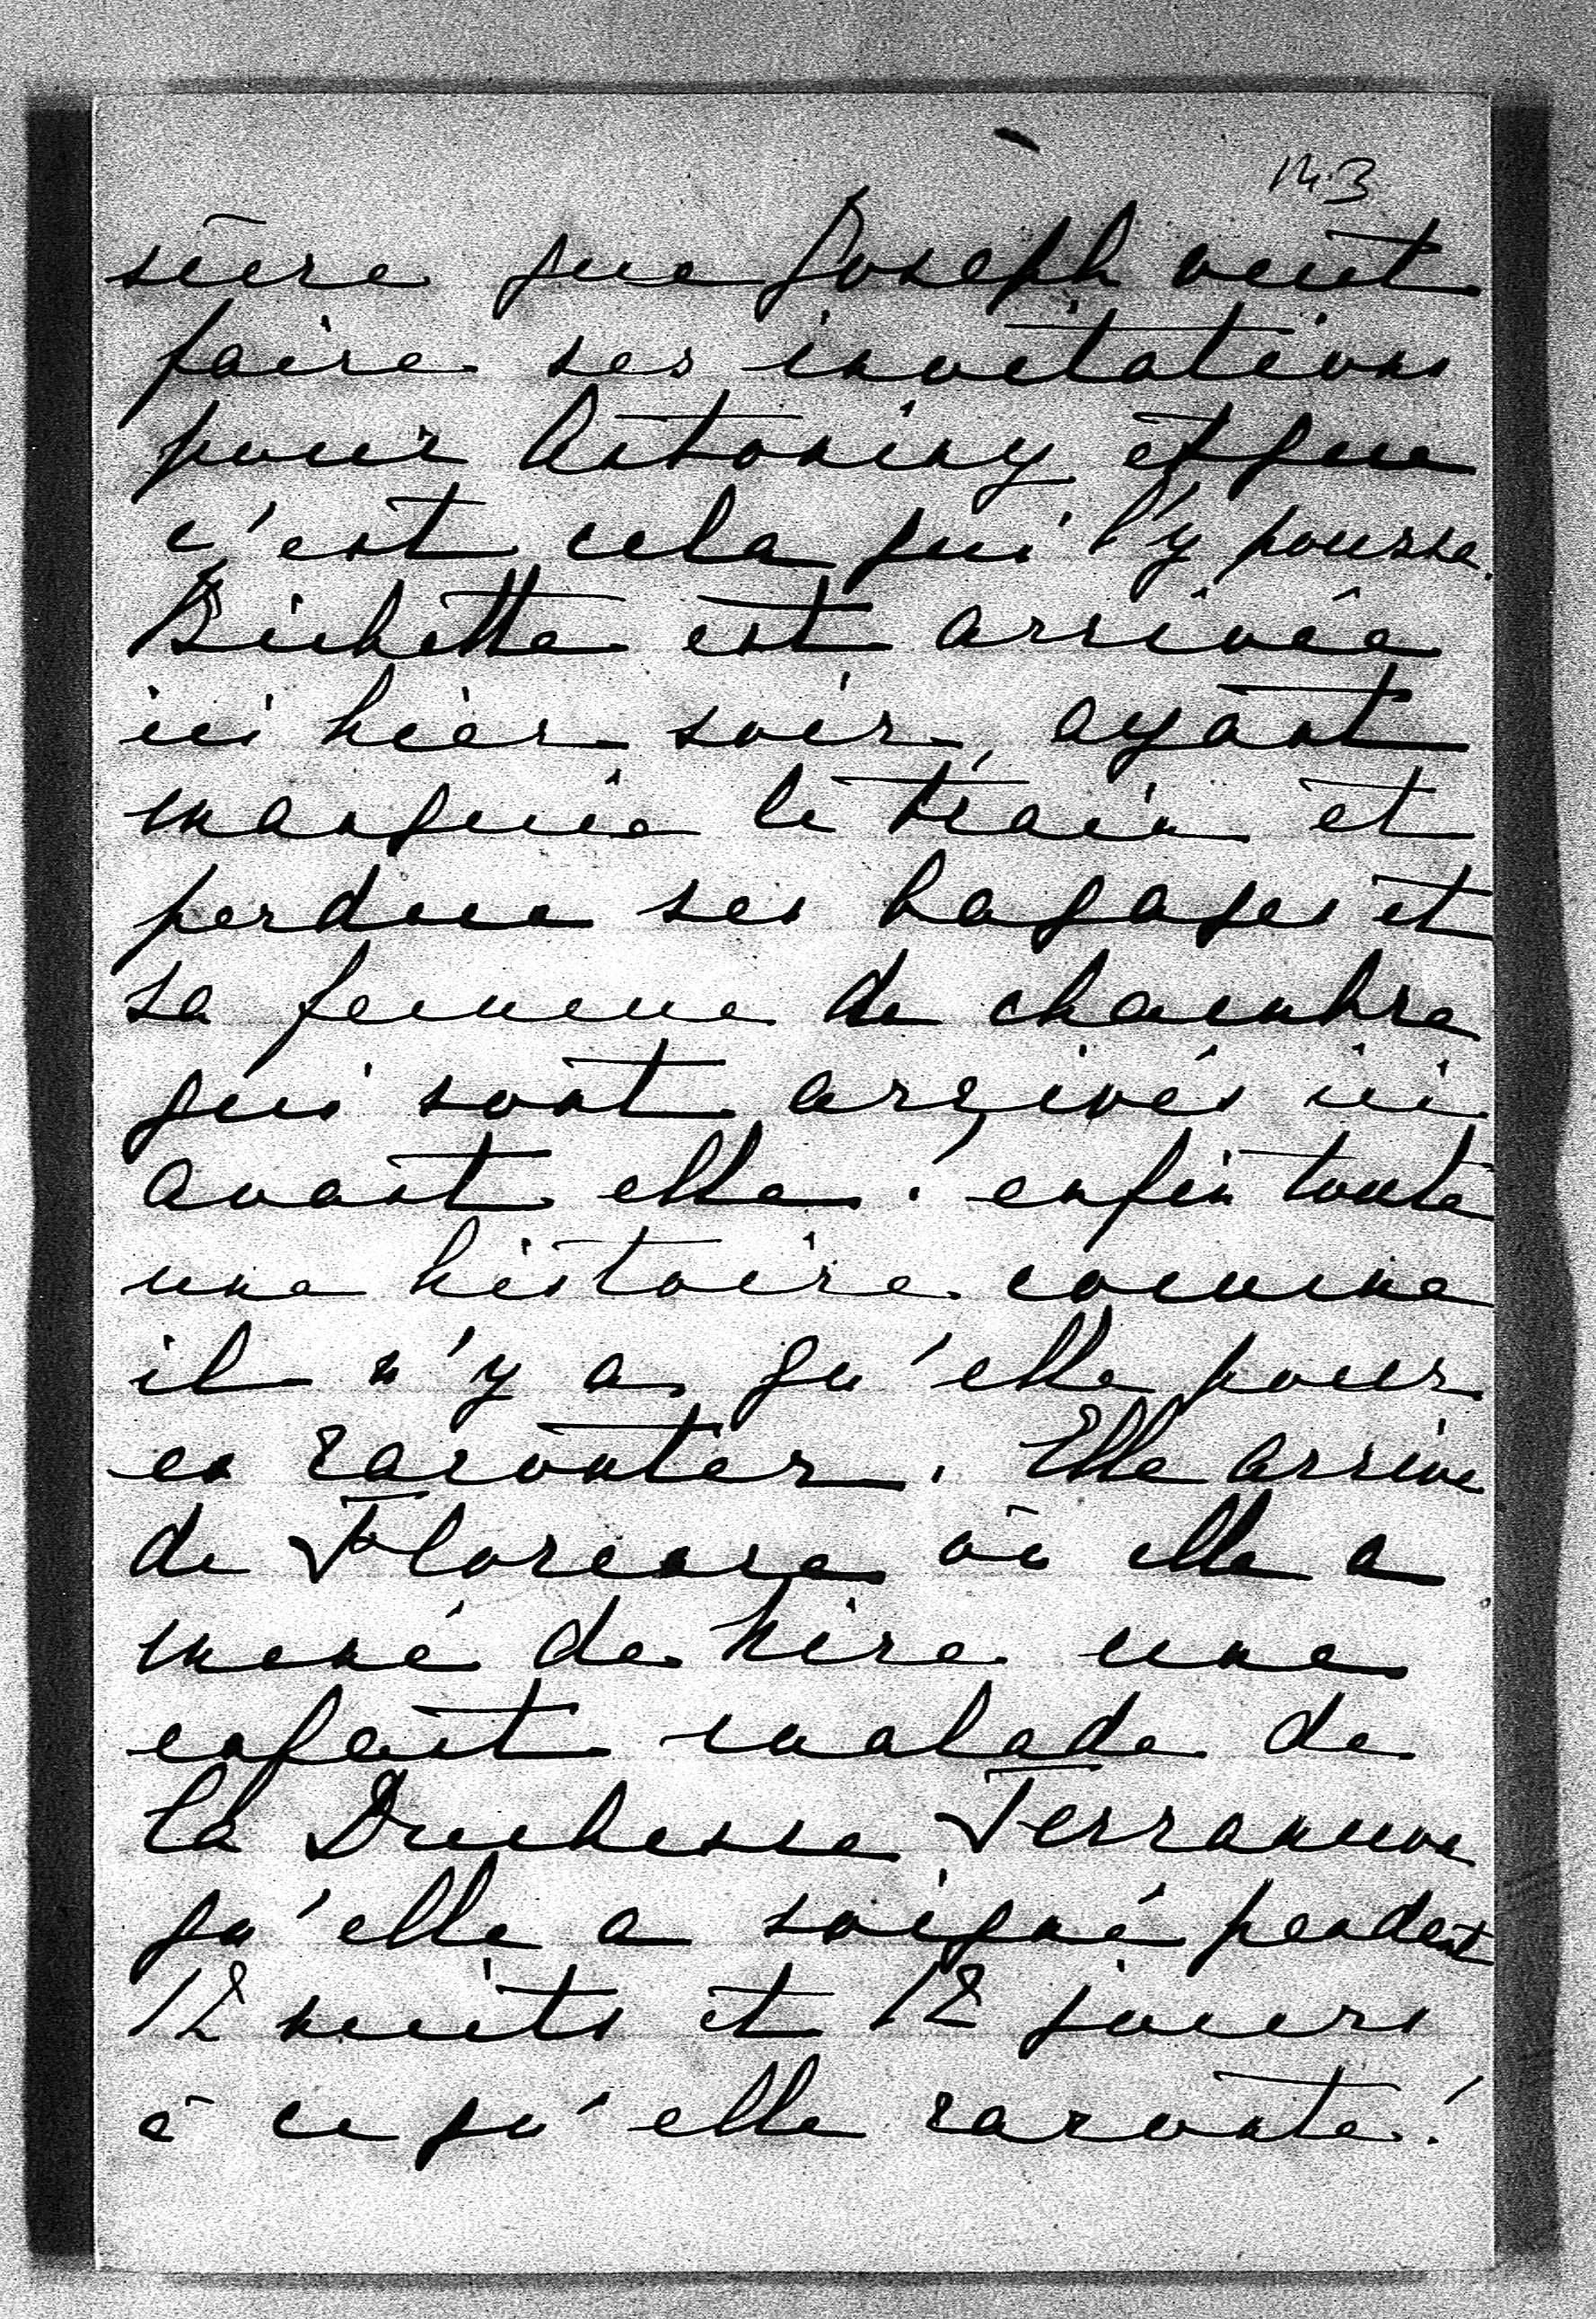 143
sûre que Joseph veut
faire ses invitations
pour Antoniny et que
c'est cela qui l'y pousse.
Bichette est arrivée
ici hier soir, ayant
manquée le train et
perdue ses bagages et
sa femme de chambre
qui sont arrivés ici
avant elle! enfin toute
une histoire comme
il n'y a qu'elle pour
en raconter. Elle arrive
de Florence où elle a
mené de Nice une
enfant malade de
la Duchesse Terranuova
qu'elle a soigné pendant
12 nuits et 12 jours
à ce qu'elle raconte!